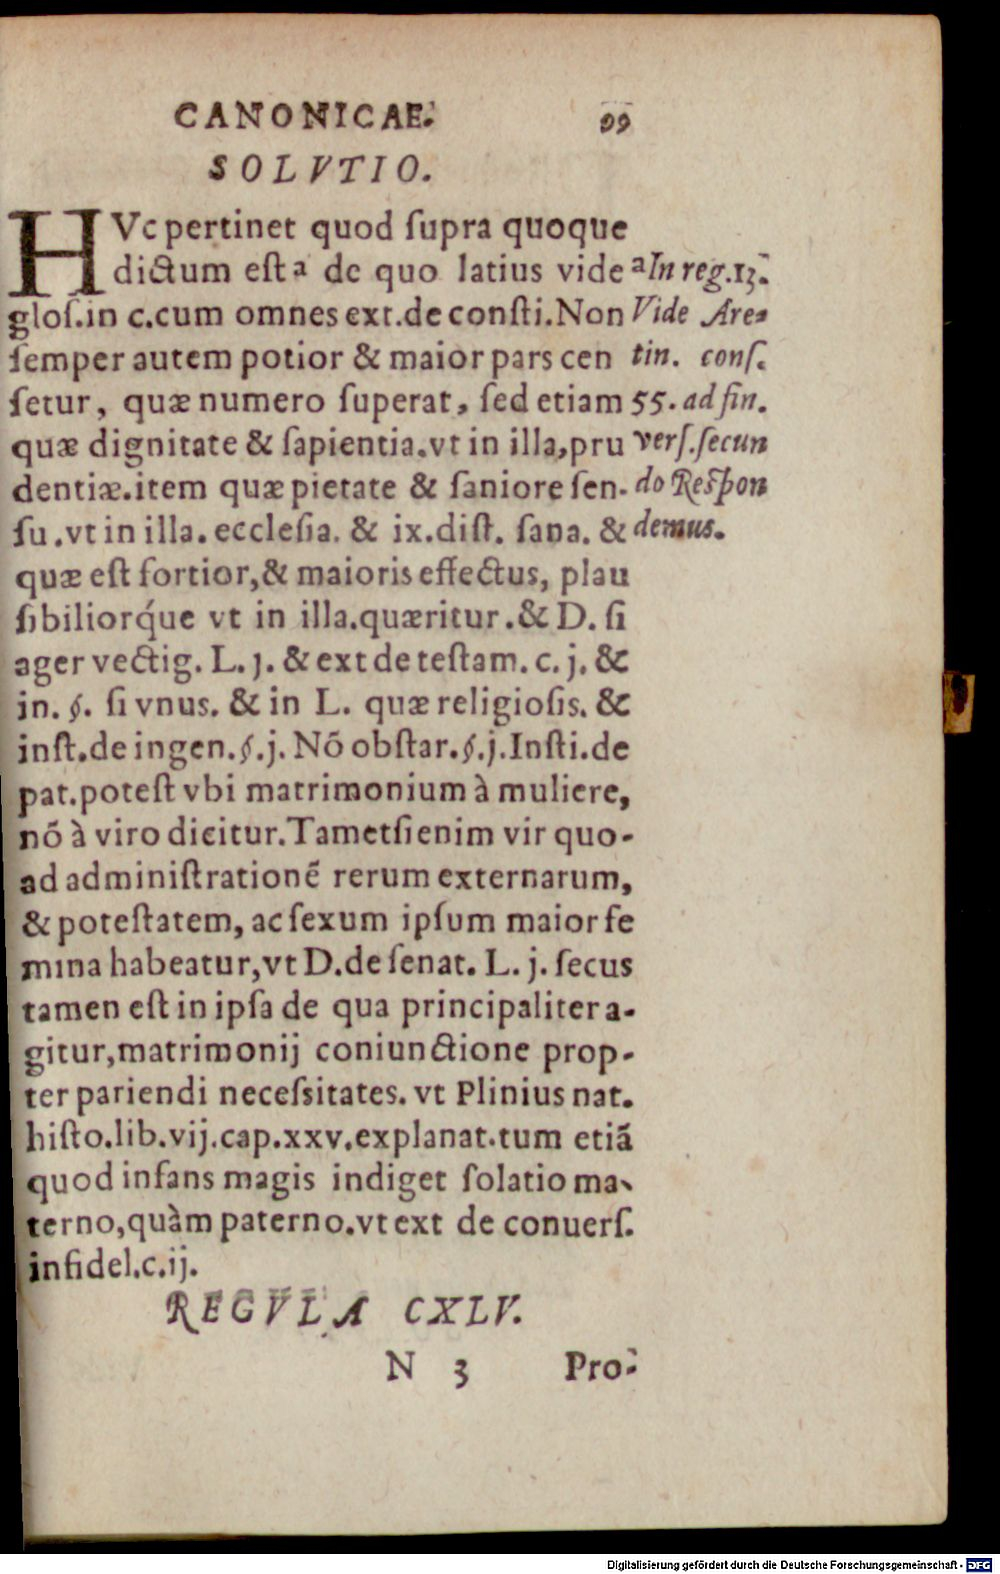 CANONICAE. 99
SOLVTIO.
HVc pertinet quod ſupra quoque
dictum eſt a de quo latius vide
gloſ.in c.cum omnes ext.de conſti.Non
ſemper autem potior & maior pars cen
ſetur, quæ numero ſuperat, ſed etiam
quæ dignitate & ſapientia.vt in illa,pru
dentiæ.item quæ pietate & ſaniore ſen-
ſu.vt in illa. eccleſia. & ix.diſt. ſana. &
quæ eſt fortior,& maioris effectus, plau
ſibiliorq́ue vt in illa.quæritur.& D. ſi
ager vectig. L. j. & ext de teſtam. c. j. &
in. §. ſi vnus. & in L. quæ religioſis. &
inſt.de ingen.§.j. Nõ obſtar.§.j.Inſti.de
pat.poteſt vbi matrimonium à muliere,
nõ à viro dicitur.Tametſi enim vir quo-
ad adminiſtrationẽ rerum externarum,
& poteſtatem, ac ſexum ipſum maior fe
mina habeatur,vt D.de ſenat. L. j. ſecus
tamen eſt in ipſa de qua principaliter a-
gitur,matrimonij coniunctione prop-
ter pariendi neceſsitates. vt Plinius nat.
hiſto.lib.vij.cap.xxv.explanat.tum etiã
quod infans magis indiget ſolatio ma-
terno,quàm paterno.vt ext de conuerſ.
infidel.c.ij.
a In reg.13.
Vide Are-
tin. conſ.
55. ad fin.
verſ.ſecun
do Reſpon
demus.
REGVLA CXLV.
N 3 Pro-
Digitalisierung gefördert durch die Deutsche Forschungsgemeinschaft - DFG